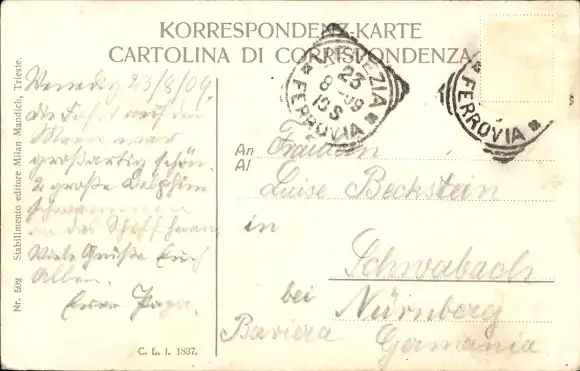 KORRESPONDENZ-KARTE
CARTOLINA DI CORRISPONDENZA
Venedig 23/8/09.
die Fahrt auf dem
Meer war
großartig schön.
2 große Delphine
schwammen
an das Schiff heran
Viele Grüße Euch
Allen.
Euer Papa.
VENEZIA
23
8 -09
10 S
FERROVIA
FERROVIA
An
Al
Fräulein
Luise Bechstein
in
Schwabach
bei
Nürnberg
Baviera
Germania
Nr. 502 Stabilimento editore Milan Mandich, Trieste.
C. L. I. 1837.